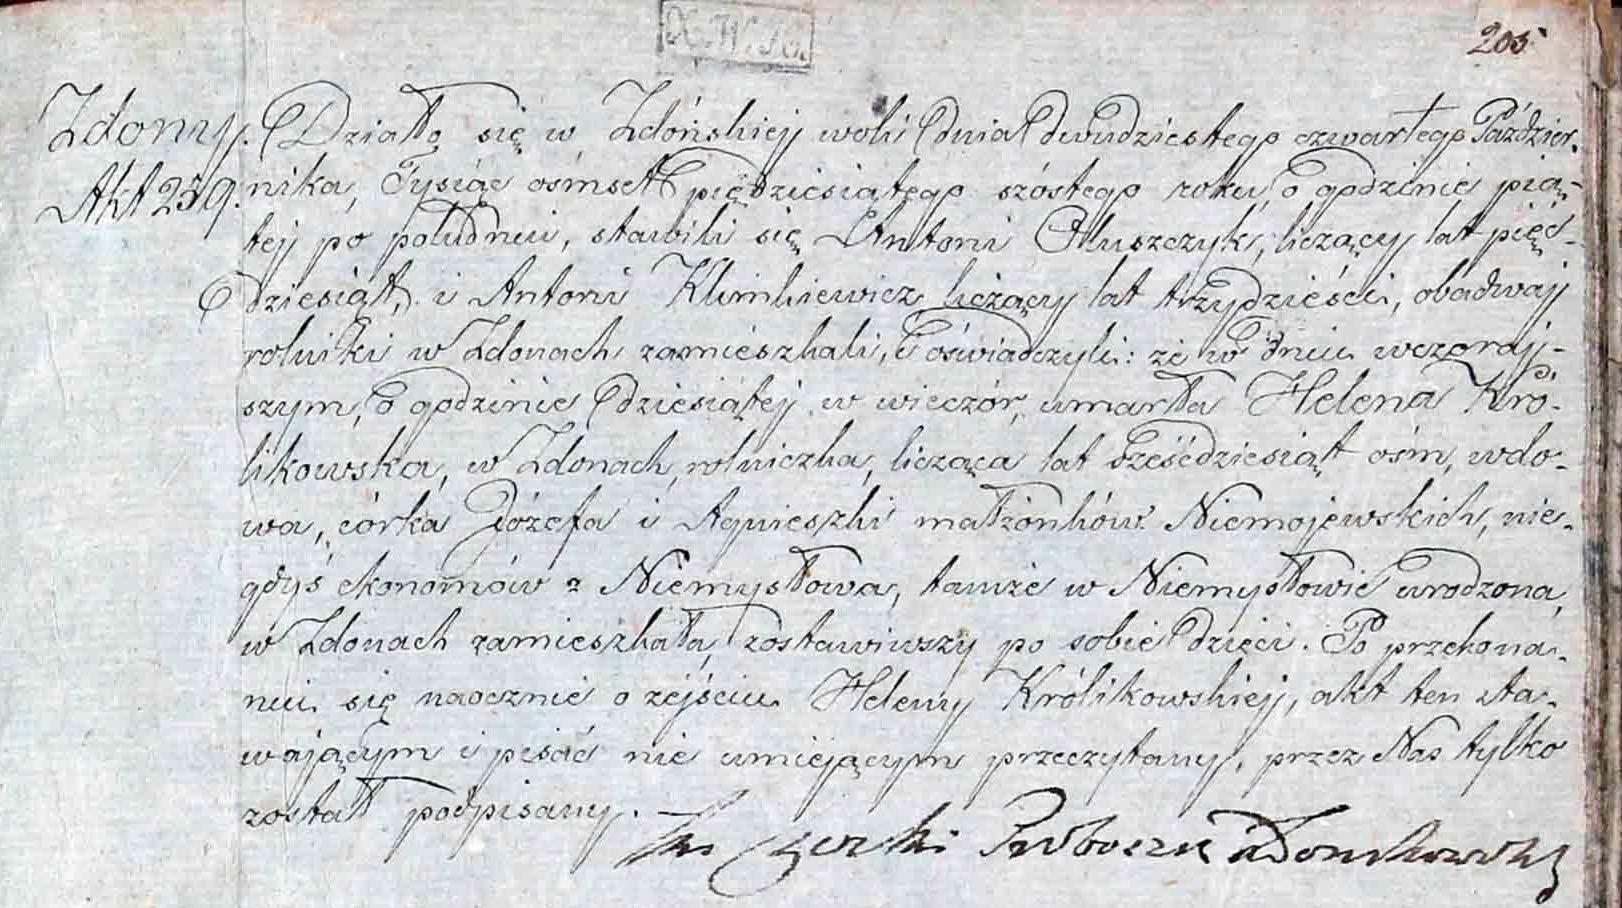 205
Zdony.
Akt 239.
Działo się w Zdóńskiej woli dnia dwudziestego czwartego Paździer-
nika, Tysiąc ośmset pięćdziesiątego szóstego roku, o godzinie pią-
tej po południu, stawili się Antoni Pluszczyk, liczący lat pięć-
dziesiąt, i Antoni Klimkiewicz liczący lat trzydzieści, obadwaj
rolniki w Zdonach zamieszkali, i oświadczyli: że w dniu wczoraj-
szym, o godzinie dziesiątej w wieczór, umarła Helena Kró-
likowska, w Zdonach, rolniczka, licząca lat sześćdziesiąt ośm, wdo-
wa, córka Józefa i Agnieszki małżonków Niemojewskich, nie-
gdyś ekonomów z Niemysłowa, tamże w Niemysłowie urodzona,
w Zdonach zamieszkała, zostawiwszy po sobie dzieci. Po przekona-
niu się naocznie o zejściu Heleny Królikowskiej, akt ten sta-
wającym i pisać nie umiejącym przeczytany, przez Nas tylko
został podpisany.